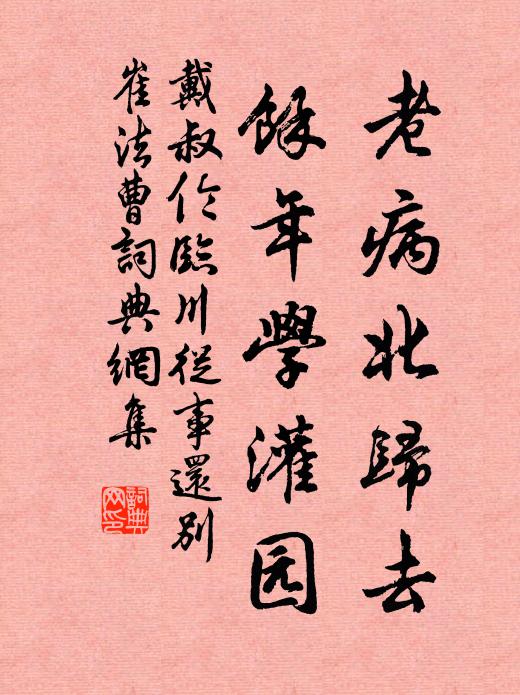 老病北歸去
餘年學灌园
戴叔伦臨川從事還別
崔法曹詞典網集
詞典网印